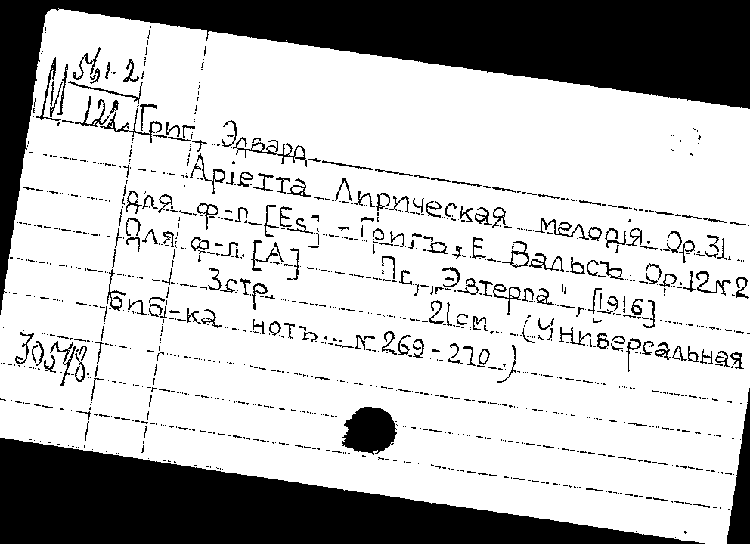 М 561.2
122.
Григ, Эдвард.
Аріетта Лирическая мелодія. Ор. 31
для ф-п [Es] - Григъ, Е. Вальсъ Ор. 12 № 2
Для ф-п. [А] Пг., „Эвтерпа", [1916]
3 стр. 21 cm. (Универсальная
биб-ка нотъ... № 269-270.)
30578.